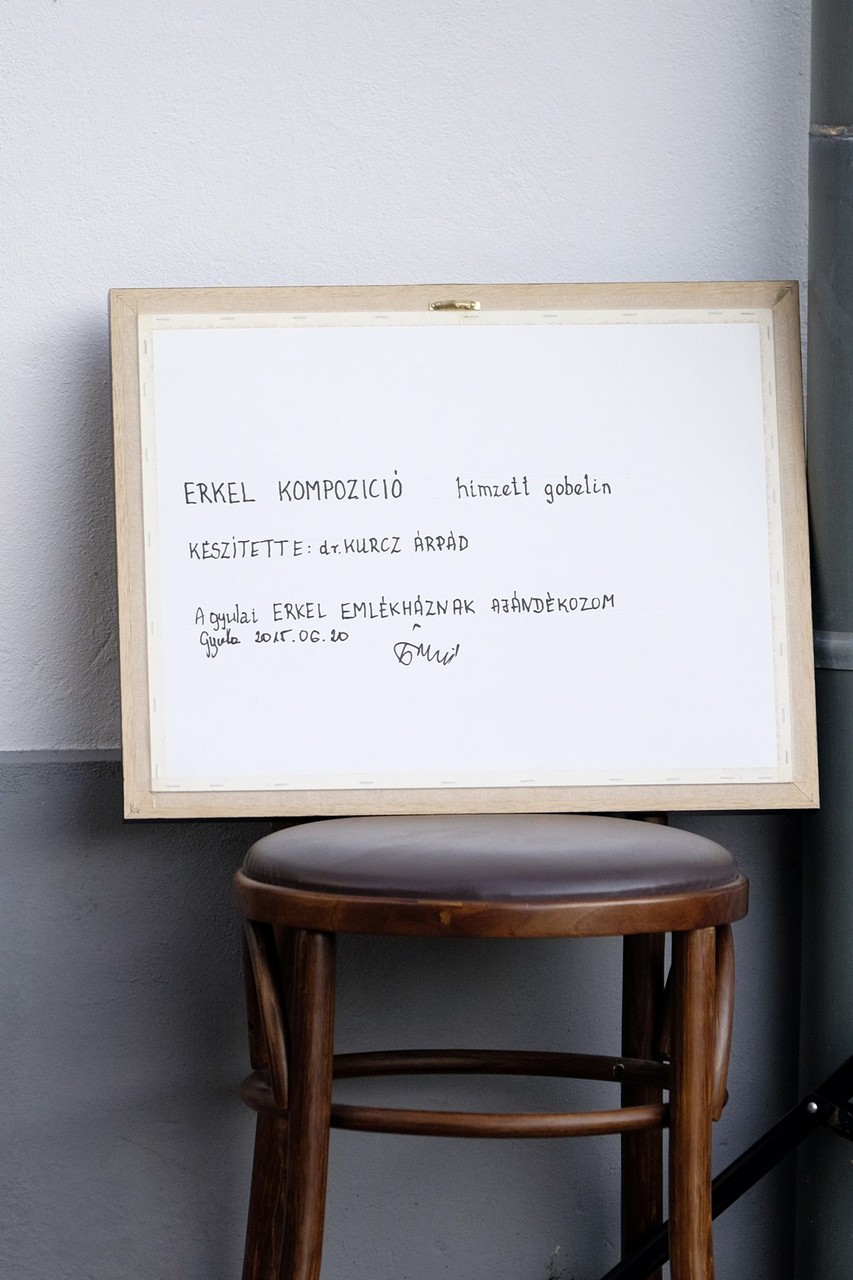 ERKEL KOMPOZICIÓ hímzett gobelin
KÉSZÍTETTE: dr. KURCZ ÁRPÁD
A gyulai ERKEL EMLÉKHÁZNAK AJÁNDÉKOZOM
Gyula 2015.06.20